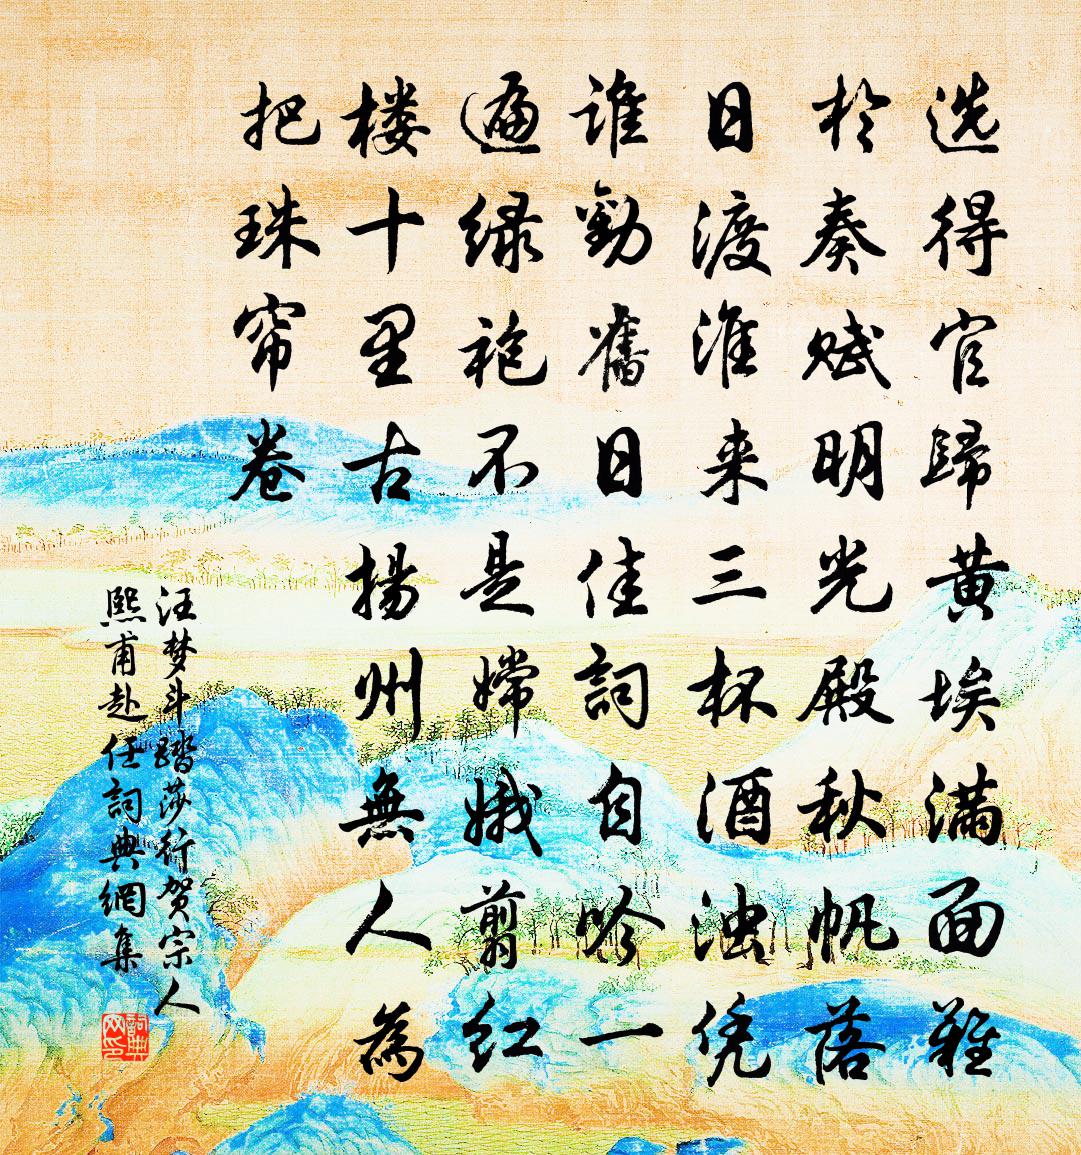 选得官歸黄埃满面难
於奏赋明光殿秋帆落
日渡淮来三杯酒浊凭
谁勸舊日佳詞自吟一
遍绿袍不是嫦娥剪红
楼十里古揚州無人為
把珠帘卷
汪梦斗踏莎行贺宗人
熙甫赴任詞典網集
詞典网印